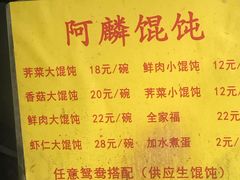 阿麟馄饨
荠菜大馄饨 18元/碗 鲜肉小馄饨 12元/
香菇大馄饨 20元/碗 荠菜小馄饨 12元/
鲜肉大馄饨 22元/碗 全家福 22元
虾仁大馄饨 28元/碗 加水煮蛋 2元/
任意鸳鸯搭配（供应生馄饨）